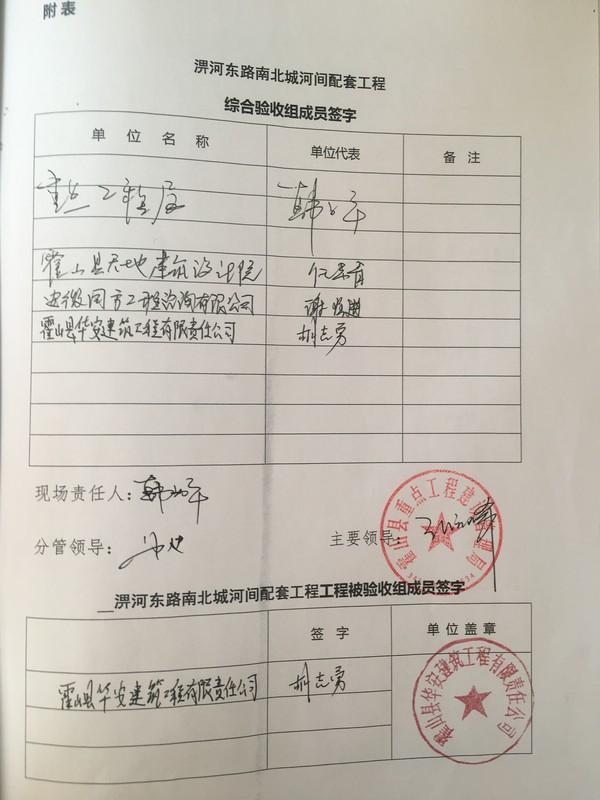 附表
淠河东路南北城河间配套工程
综合验收组成员签字
单位名称 单位代表 备注
重点工程局
霍山县天地建筑设计院
安徽同方工程咨询有限公司
霍山县华安建筑工程有限责任公司 胡志勇
现场责任人：
分管领导： 主要领导：
霍山县重点工程建设管理局
淠河东路南北城河间配套工程工程被验收组成员签字
签字 单位盖章
霍山县华安建筑工程有限责任公司 胡志勇
霍山县华安建筑工程有限责任公司